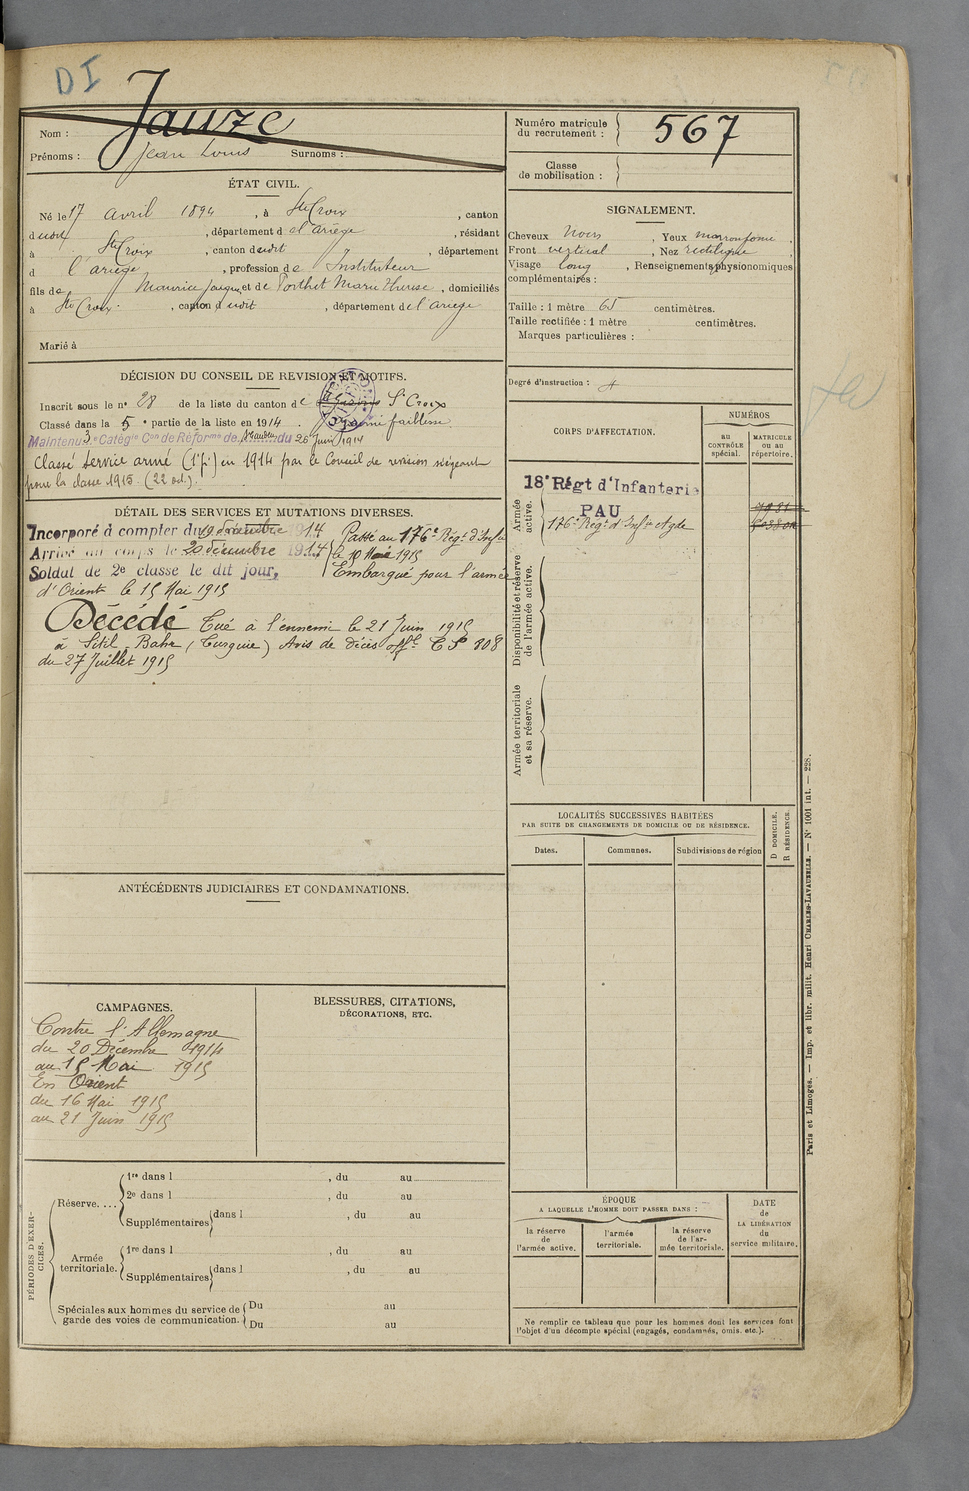 DI
Nom : Jauze
Prénoms : Jean Louis Surnoms :
Numéro matricule du recrutement : 567
Classe de mobilisation :
ÉTAT CIVIL.
Né le 17 avril 1894, à Ste Croix, canton
dudit, département d e l'ariège, résidant
à Ste Croix, canton dudit, département
d l'ariège, profession de Instituteur
fils de Maurice Jacques et de Porthet Marie Therese, domiciliés
à Ste Croix, canton dudit, département de l'ariège
Marié à
SIGNALEMENT.
Cheveux Noirs, Yeux marronfoncé,
Front vertical, Nez rectiligne,
Visage long, Renseignements physionomiques
complémentaires :
Taille : 1 mètre 65 centimètres.
Taille rectifiée : 1 mètre centimètres.
Marques particulières :
Degré d'instruction :
DÉCISION DU CONSEIL DE REVISION ET MOTIFS.
Inscrit sous le no 28 de la liste du canton de St Croix
Classé dans la 5e partie de la liste en 1914. faiblesse
Maintenu 3e Catégie Con de Réforme de du 26 Juin 1914
Classé service armé (1ere p.) en 1914 par le Conseil de revision siégeant
pour la classe 1915 (22 oct.).
DÉTAIL DES SERVICES ET MUTATIONS DIVERSES.
Incorporé à compter du 19 décembre 1914
Arrivé au corps le 20 décembre 1914
Soldat de 2e classe le dit jour,
Passé au 176e Régt d'Infie
le 10 Mai 1915
Embarqué pour l'armée
d'Orient le 15 Mai 1915
Décédé Tué à l'ennemi le 21 Juin 1915
à Sitil-Bahr (Turquie) Avis de décès offel CP 808
du 27 Juillet 1915
CORPS D'AFFECTATION.
NUMÉROS
AU CONTRÔLE spécial.
MATRICULE OU AU répertoire.
Armée active.
18e Régt d'Infanterie
PAU
176e Régt d'Infie Agde
Disponibilité et réserve de l'armée active.
Armée territoriale et sa réserve.
LOCALITÉS SUCCESSIVES HABITÉES
PAR SUITE DE CHANGEMENTS DE DOMICILE OU DE RÉSIDENCE.
Dates.
Communes.
Subdivisions de région
D DOMICILE.
R RÉSIDENCE.
ANTÉCÉDENTS JUDICIAIRES ET CONDAMNATIONS.
CAMPAGNES.
Contre l'Allemagne
du 20 Décembre 1914
au 15 Mai 1915
En Orient
du 16 Mai 1915
au 21 Juin 1915
BLESSURES, CITATIONS,
DÉCORATIONS, ETC.
PÉRIODES D'EXERCICES.
Réserve....
1re dans l, du au
2e dans l, du au
Supplémentaires dans l, du au
Armée territoriale.
1re dans l, du au
Supplémentaires dans l, du au
Spéciales aux hommes du service de garde des voies de communication.
Du au
Du au
ÉPOQUE
A LAQUELLE L'HOMME DOIT PASSER DANS :
la réserve de l'armée active.
l'armée territoriale.
la réserve de l'armée territoriale.
DATE de LA LIBÉRATION du service militaire.
Ne remplir ce tableau que pour les hommes dont les services font
l'objet d'un décompte spécial (engagés, condamnés, omis, etc.).
Paris et Limoges. — Imp. et libr. milit. Henri CHARLES-LAVAUZELLE. — No 1001 int. — 228.